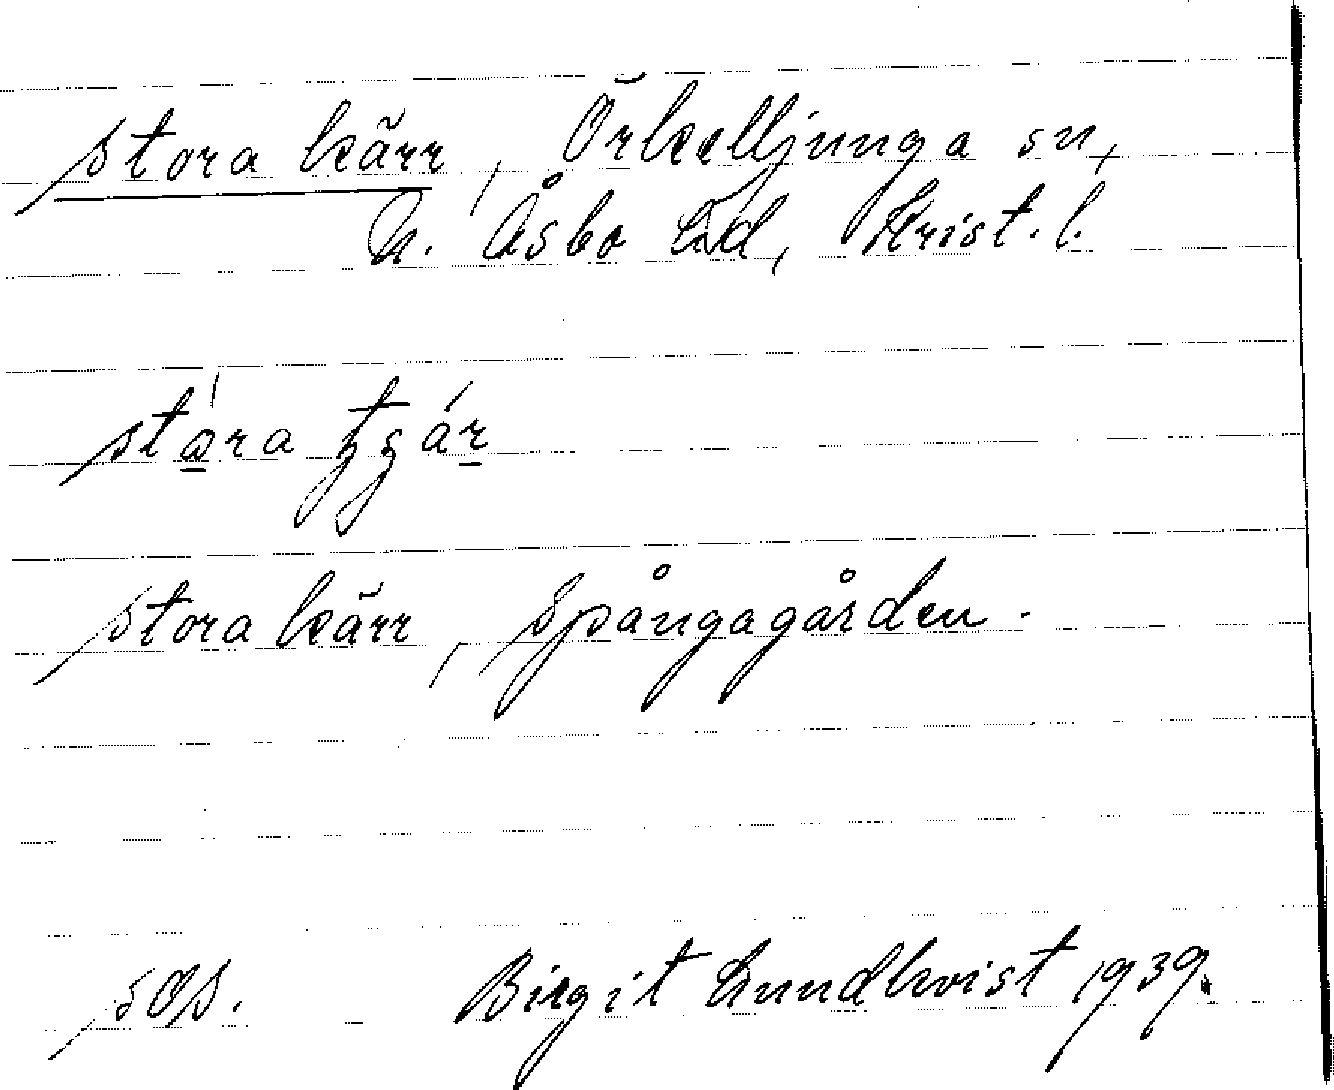 stora kärr, Örkelljunga sn,
N. Åsbo hd, Krist. l.
stora kärr, Spångagården.
Birgit Lundkvist 1939.